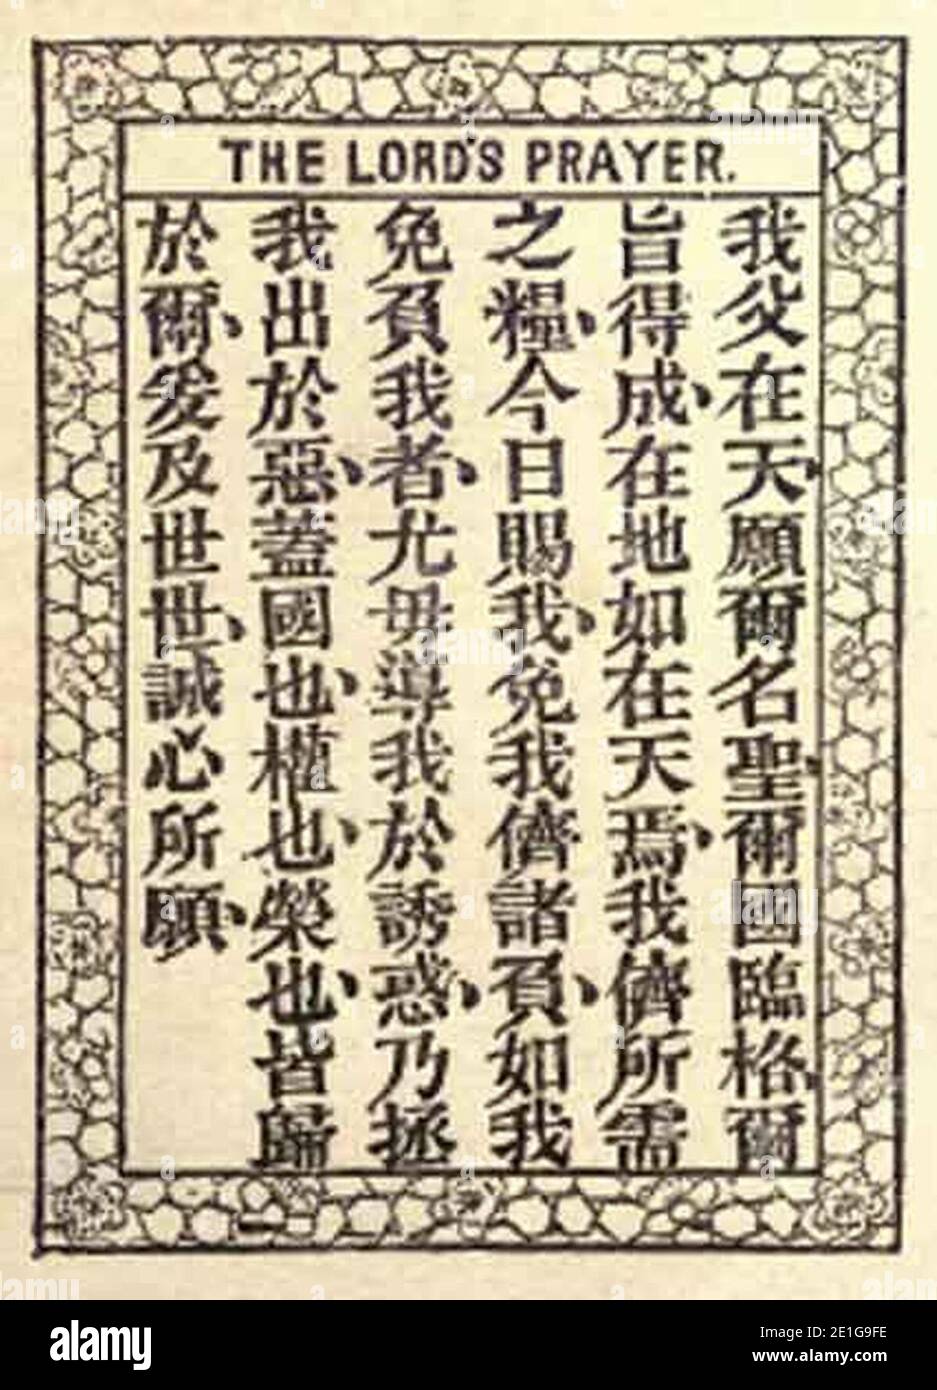 THE LORD'S PRAYER.
我父在天、願爾名聖、爾國臨格、爾
旨得成、在地如在天焉、我儕所需
之糧、今日賜我、免我儕諸負、如我
免負我者、尤毋導我於誘惑、乃拯
我出於惡、蓋國也、權也、榮也、皆歸
於爾、爰及世世、誠心所願、
alamy
Image ID: 2E1G9FE
www.alamy.com